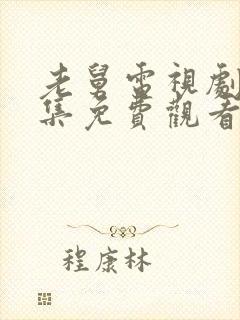 老舅電視劇
集免費觀看
程康林